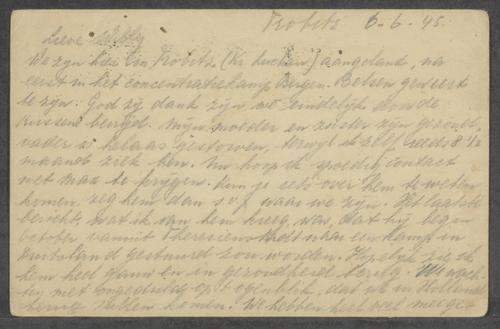 Trobitz 6-6-45.
Lieve
We zijn hier in Trobitz (Kr. Luckau) aangeland, na
eerst in het concentratiekamp Bergen-Belsen geweest
te zijn. God zij dank zijn we eindelijk door de
Russen bevrijd. Mijn moeder en zuster zijn gezond,
vader is helaas gestorven, terwijl ik zelf reeds 8 1/2
maand ziek ben. Nu hoop ik spoedig contact
met Max te krijgen. Kun je iets over hem te weten
komen, zeg hem dan s.v.p. waar we zijn. Het laatste
bericht, wat ik van hem kreeg, was, dat hij begin
october vanuit Theresienstadt naar een kamp in
Duitsland gestuurd zou worden. Hopelijk zie ik
hem heel gauw en in gezondheid terug. We wach-
ten met ongeduld op 't ogenblik, dat we in Holland
terug zullen komen. We hebben heel veel meege-